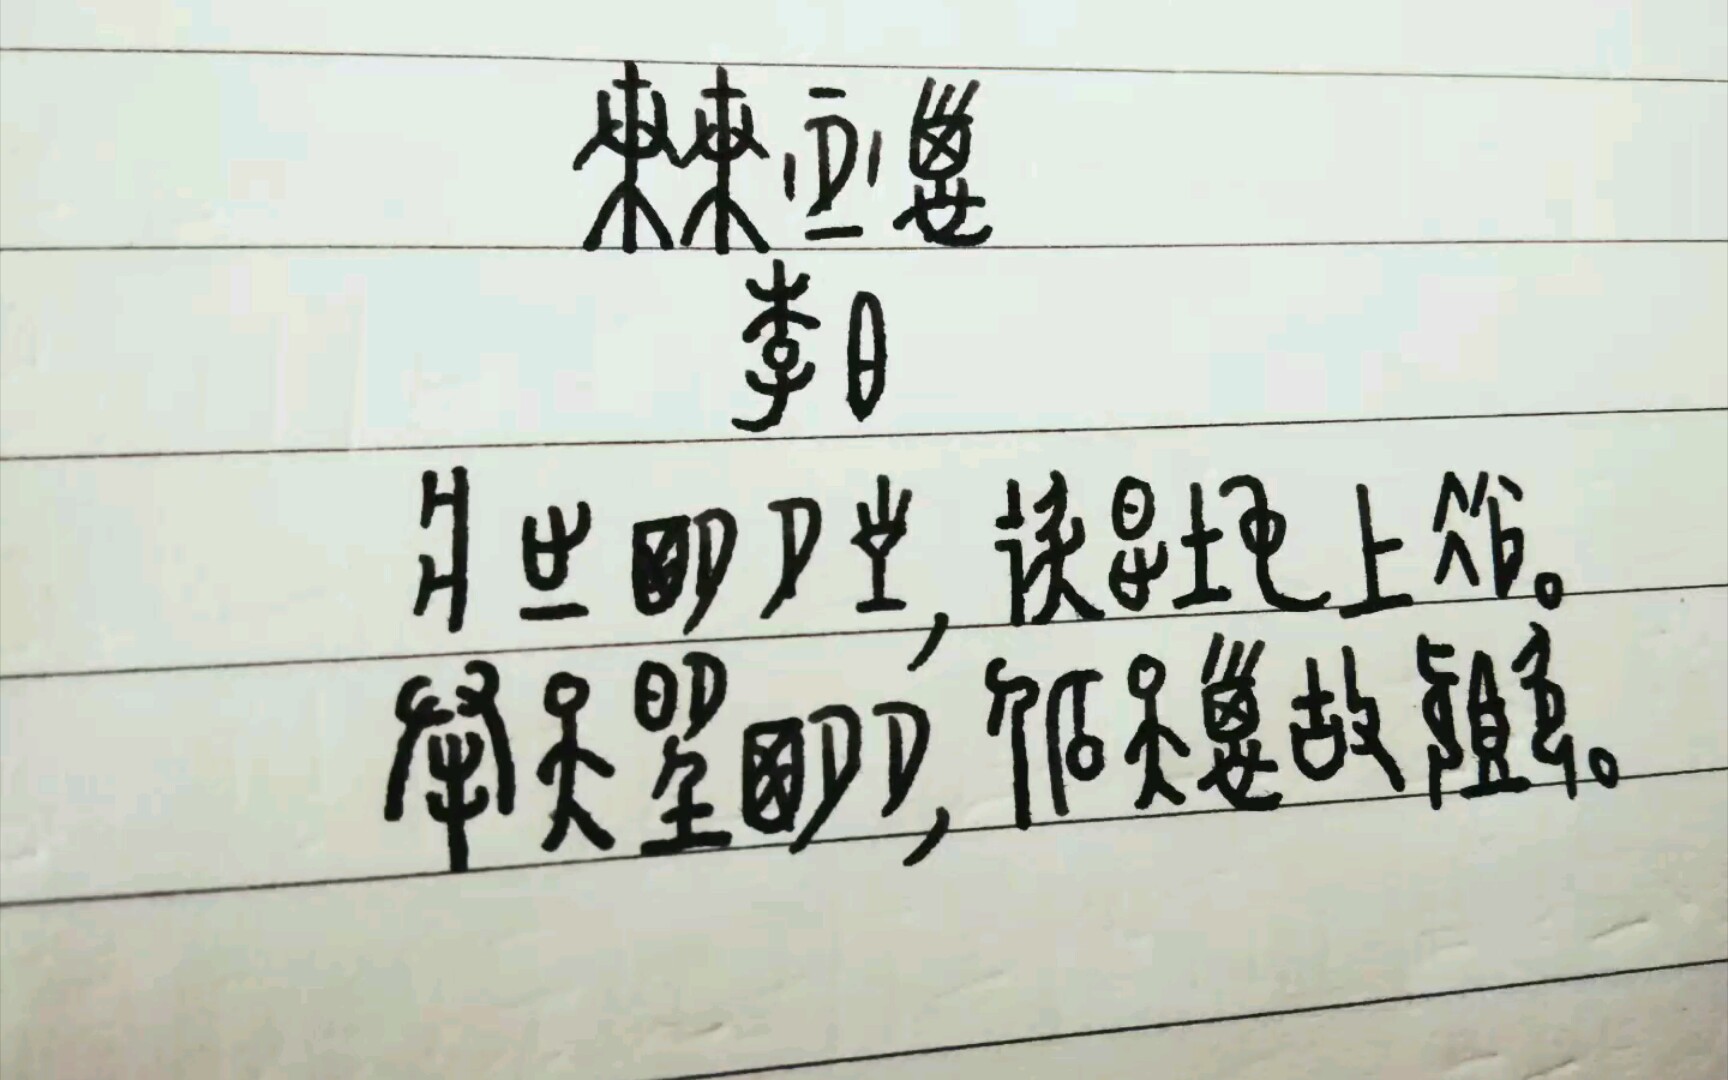 静夜思
李白
床前明月光，疑是地上霜。
举头望明月，低头思故乡。